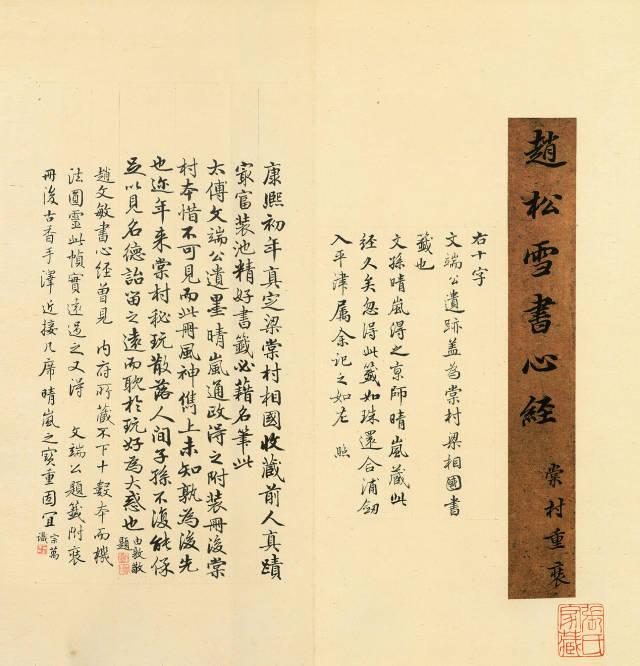 趙松雪書心経
棠村重裝
張氏家藏
右十字
文端公遺跡蓋為棠村梁相國書
籤也
文孫晴嵐得之京師晴嵐藏此
経久矣忽得此籤如珠還合浦劒
入平津屬余記之如左 照
康熙初年真定梁棠村相國收藏前人真蹟
冣富装池精好書籤必藉名筆此
太傅文端公遺墨晴嵐通政得之附裝冊後棠
村本惜不可見而此冊風神雋上未知孰為後先
也近年来棠村秘玩散落人間子孫不復能保
足以見名德詒留之遠而耽於玩好為大惑也 由敦敬題
趙文敏書心經曾見 内府所藏不下十數本而機
法圓靈此幀實遠過之又得 文端公題籤附裝
冊後古香手澤近接几席晴嵐之寶重固宜 宗萬識